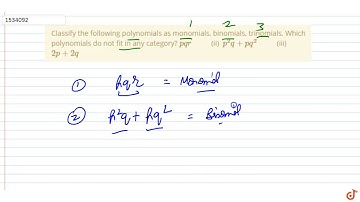 1534092
1 2 3
Classify the following polynomials as monomials, binomials, trinomials. Which
polynomials do not fit in any category? pqr (ii) p²q + pq² (iii)
2p + 2q
① pqr = Monomial
② p²q + pq² = Binomial
doubtnut